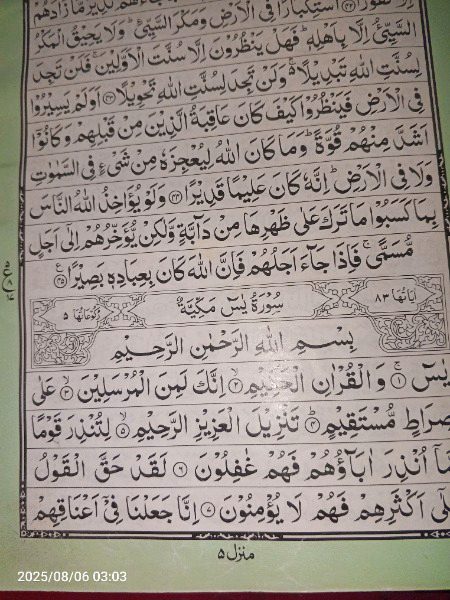 اسْتِكْبَارًا فِي الْاَرْضِ وَمَكْرَ السَّيِّئِ ؕ وَلَا يَحِيْقُ الْمَكْرُ
السَّيِّئُ اِلَّا بِاَهْلِهٖ ؕ فَهَلْ يَنْظُرُوْنَ اِلَّا سُنَّتَ الْاَوَّلِيْنَ ۚ فَلَنْ تَجِدَ
لِسُنَّتِ اللّٰهِ تَبْدِيْلًا ۚ وَلَنْ تَجِدَ لِسُنَّتِ اللّٰهِ تَحْوِيْلًا ﴿۴۳﴾ اَوَلَمْ يَسِيْرُوْا
فِي الْاَرْضِ فَيَنْظُرُوْا كَيْفَ كَانَ عَاقِبَةُ الَّذِيْنَ مِنْ قَبْلِهِمْ وَكَانُوْۤا
اَشَدَّ مِنْهُمْ قُوَّةً ؕ وَمَا كَانَ اللّٰهُ لِيُعْجِزَهٗ مِنْ شَيْءٍ فِي السَّمٰوٰتِ
وَلَا فِي الْاَرْضِ ؕ اِنَّهٗ كَانَ عَلِيْمًا قَدِيْرًا ﴿۴۴﴾ وَلَوْ يُؤَاخِذُ اللّٰهُ النَّاسَ
بِمَا كَسَبُوْا مَا تَرَكَ عَلٰى ظَهْرِهَا مِنْ دَآبَّةٍ وَّلٰكِنْ يُّؤَخِّرُهُمْ اِلٰٓى اَجَلٍ
مُّسَمًّى ۚ فَاِذَا جَآءَ اَجَلُهُمْ فَاِنَّ اللّٰهَ كَانَ بِعِبَادِهٖ بَصِيْرًا ﴿۴۵﴾
اٰيَاتُهَا ۸۳ سُوْرَةُ يٰسٓ مَكِّيَّةٌ رُكُوْعَاتُهَا ۵
بِسْمِ اللّٰهِ الرَّحْمٰنِ الرَّحِيْمِ
يٰسٓ ﴿۱﴾ وَالْقُرْاٰنِ الْحَكِيْمِ ﴿۲﴾ اِنَّكَ لَمِنَ الْمُرْسَلِيْنَ ﴿۳﴾ عَلٰى
صِرَاطٍ مُّسْتَقِيْمٍ ﴿۴﴾ تَنْزِيْلَ الْعَزِيْزِ الرَّحِيْمِ ﴿۵﴾ لِتُنْذِرَ قَوْمًا
مَّاۤ اُنْذِرَ اٰبَآؤُهُمْ فَهُمْ غٰفِلُوْنَ ﴿۶﴾ لَقَدْ حَقَّ الْقَوْلُ
عَلٰٓى اَكْثَرِهِمْ فَهُمْ لَا يُؤْمِنُوْنَ ﴿۷﴾ اِنَّا جَعَلْنَا فِيْۤ اَعْنَاقِهِمْ
منزل ۵
2025/08/06 03:03